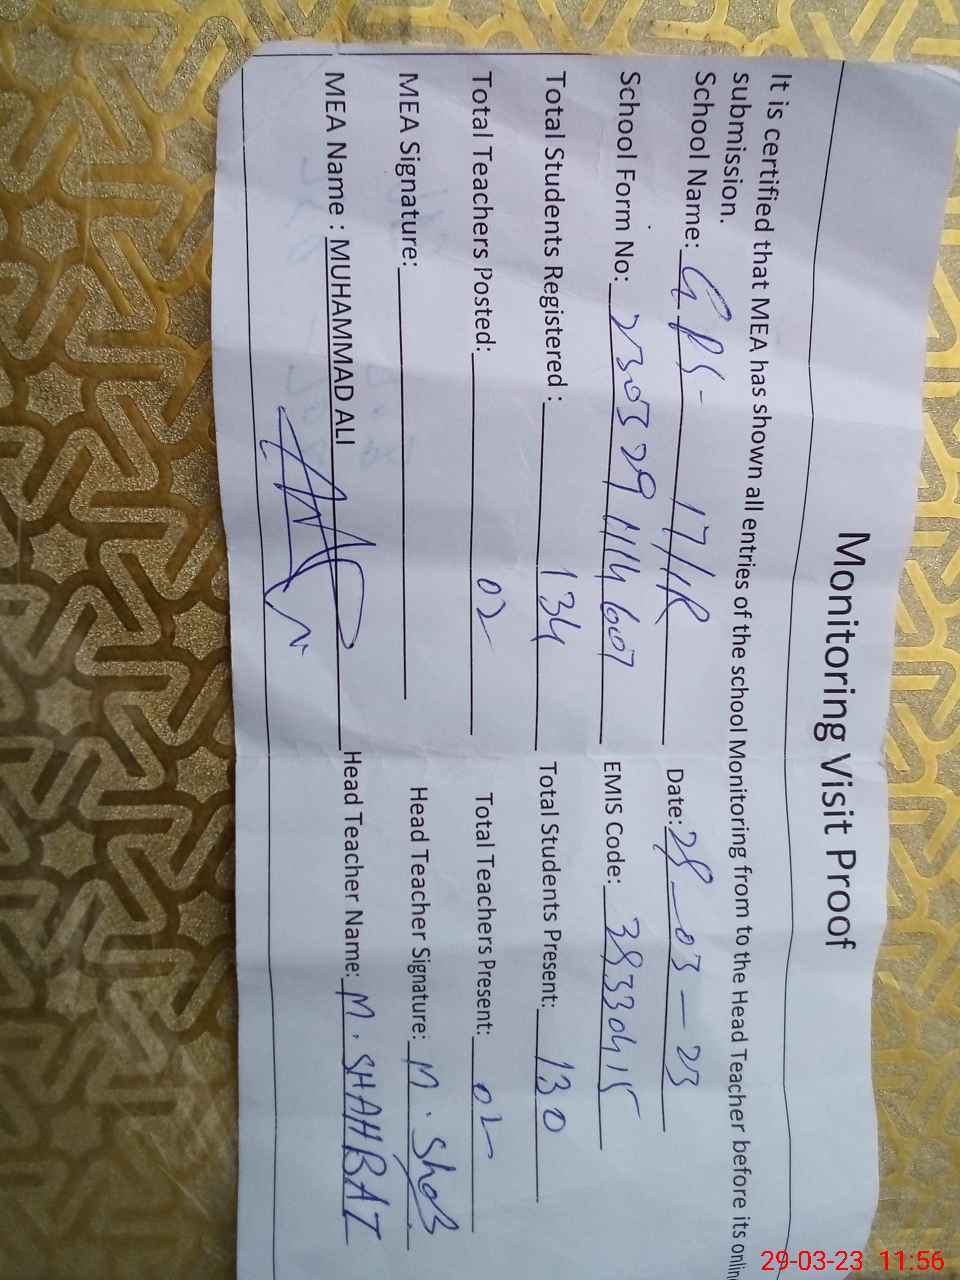 Monitoring Visit Proof
It is certified that MEA has shown all entries of the school Monitoring from to the Head Teacher before its onlin
submission.
School Name: GPS- 17/1R Date: 28-03-23
School Form No: 230329 1114607 EMIS Code: 38330415
Total Students Registered : 134 Total Students Present: 130
Total Teachers Posted: 02 Total Teachers Present: 02
MEA Signature: Head Teacher Signature: M. Shab
MEA Name : MUHAMMAD ALI Head Teacher Name: M. SHAHBAZ
29-03-23 11:56